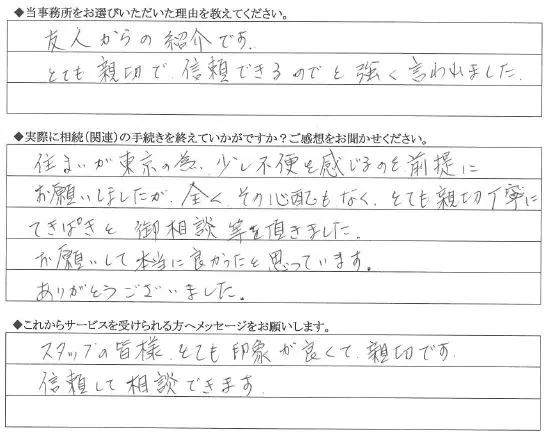 ◆当事務所をお選びいただいた理由を教えてください。
友人からの紹介です.
とても親切で.信頼できるのでと強く言われました.
◆実際に相続(関連)の手続きを終えていかがですか?ご感想をお聞かせください。
住まいが東京の為、少し不便を感じるのを前提に
お願いしましたが、全く、その心配もなく、とても親切丁寧に
てきぱきと御相談等を頂きました.
お願いして本当に良かったと思っています。
ありがとうございました。
◆これからサービスを受けられる方へメッセージをお願いします。
スタッフの皆様、とても印象が良くて、親切です.
信頼して相談できます.